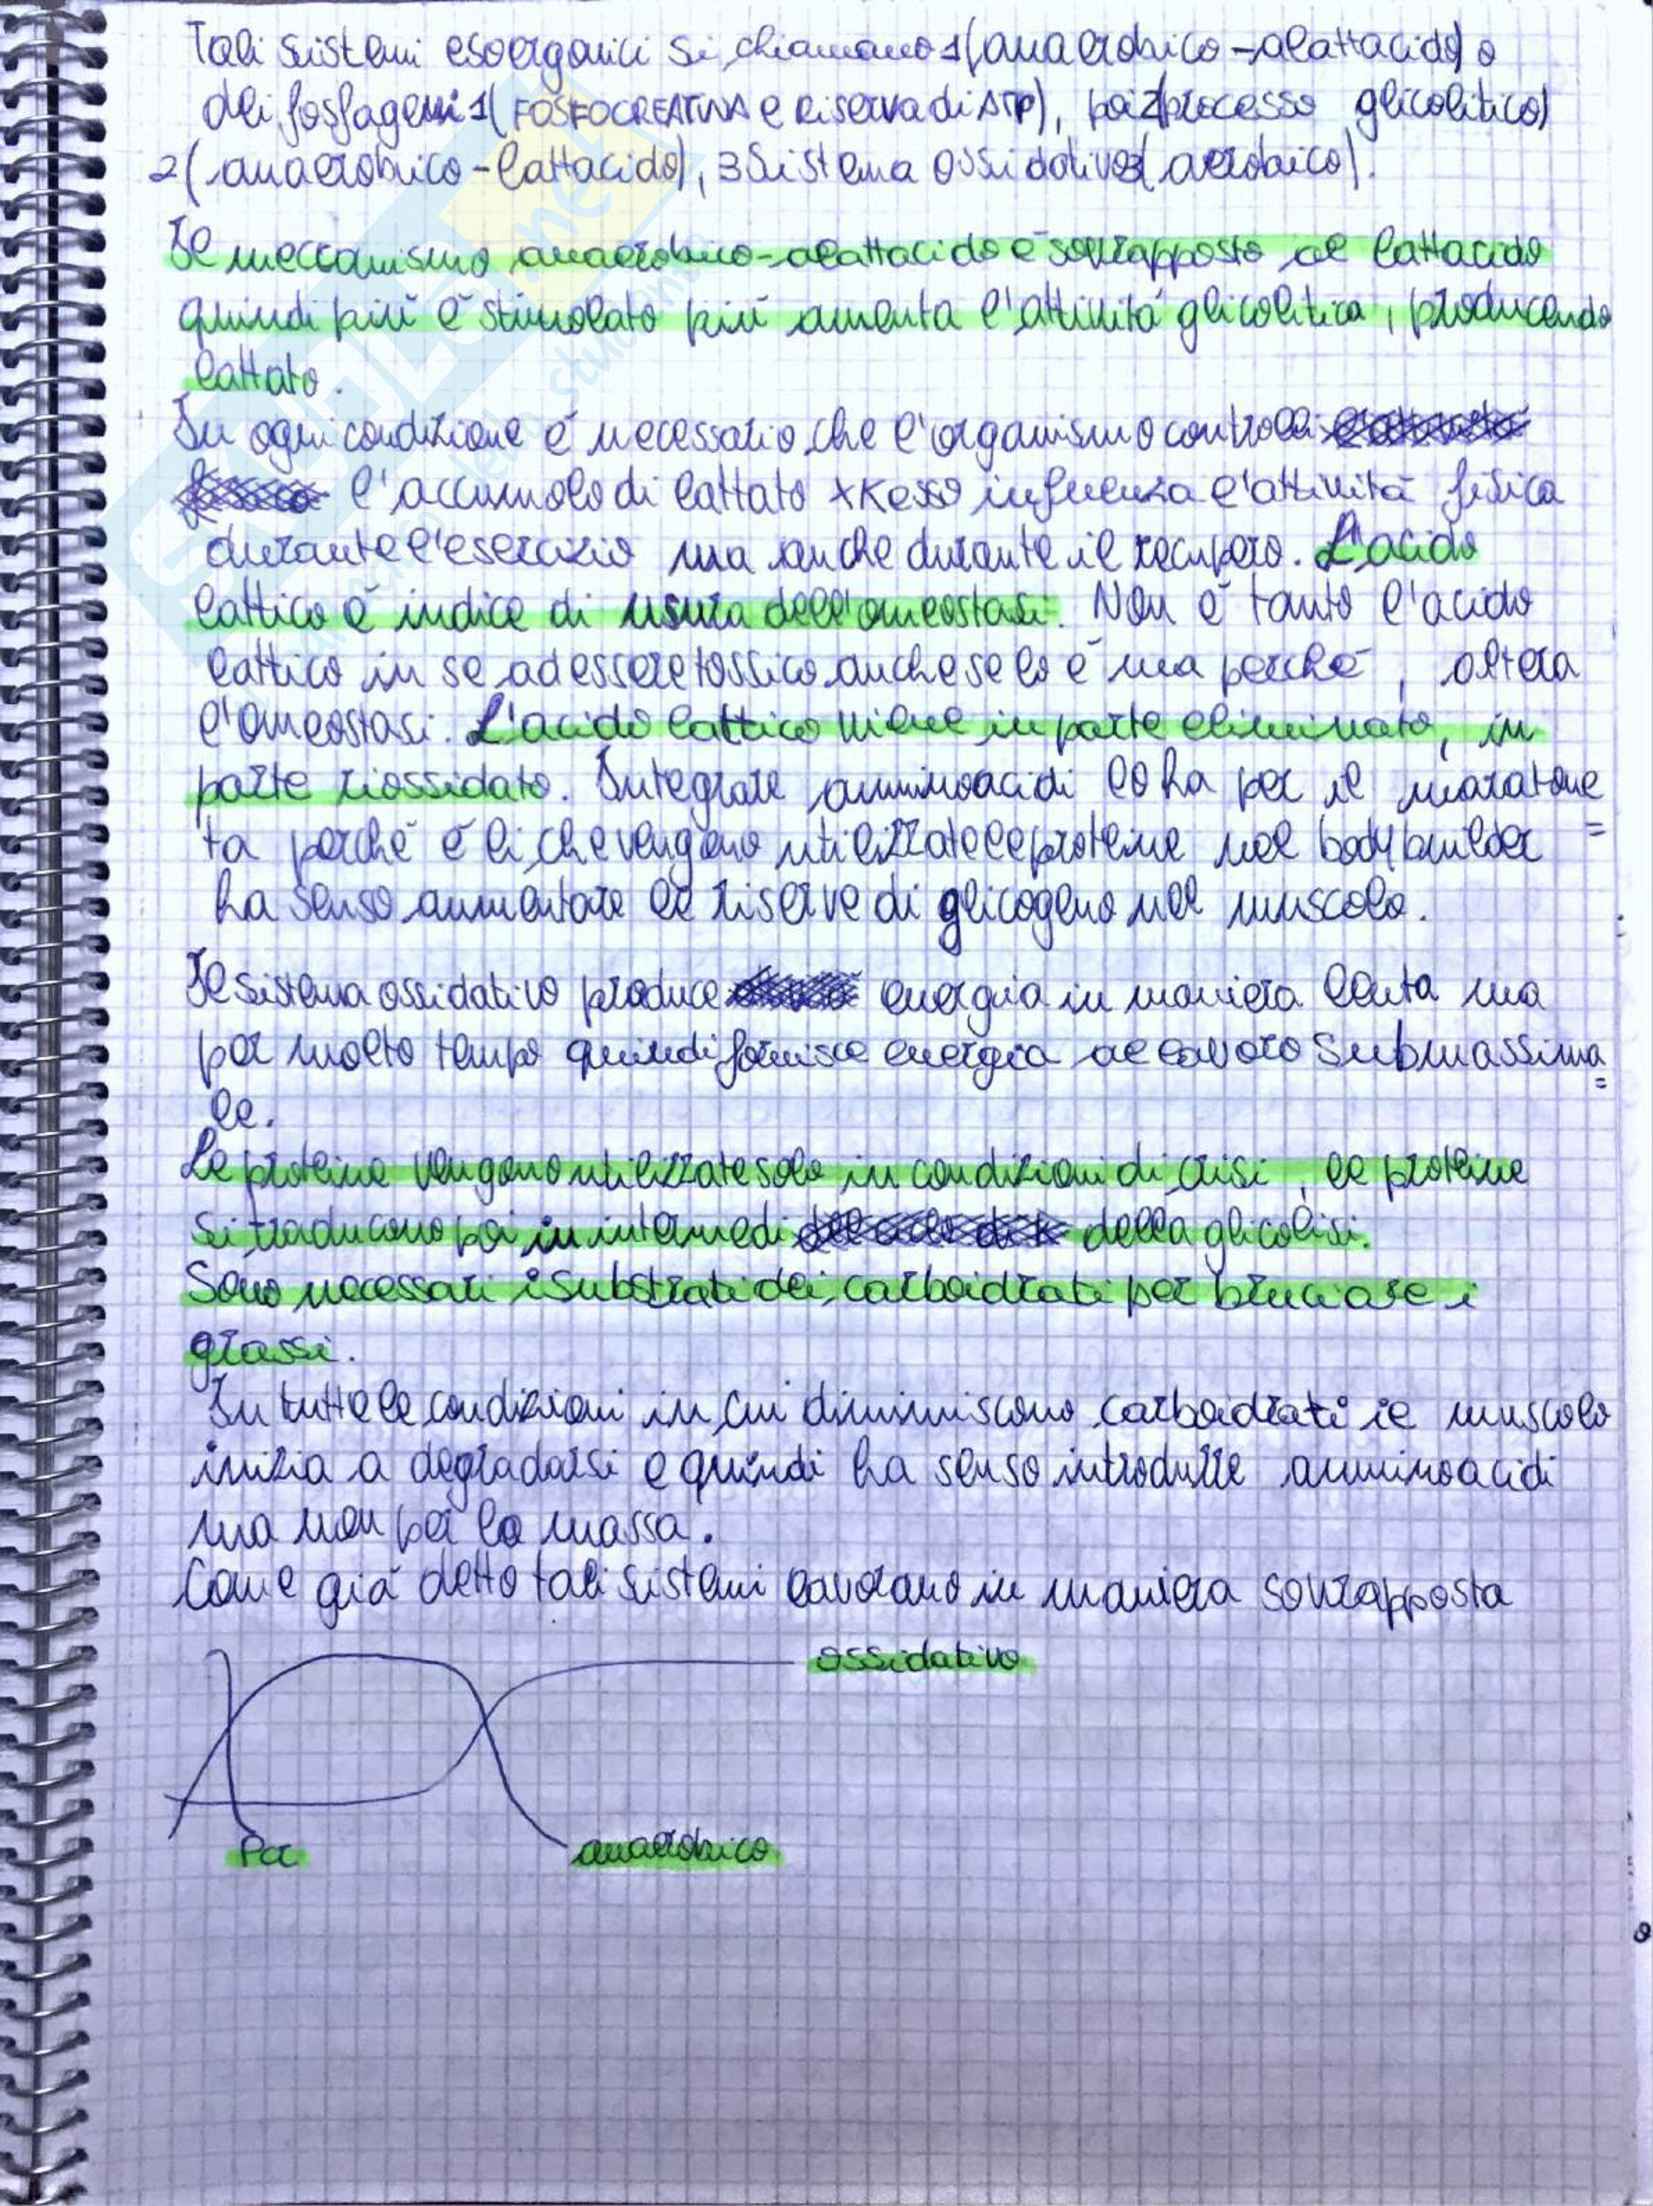 Tali sistemi esoergonici si chiamano 1(anaerobico-alattacido) o
dei fosfageni 1(FOSFOCREATINA e riserva di ATP), poi 2(processo glicolitico)
2(anaerobico-lattacido), 3 Sistema ossidativo 3(aerobico).
Il meccanismo anaerobico-alattacido è sovrapposto al lattacido
quindi più è stimolato più aumenta l'attività glicolitica, producendo
lattato.
In ogni condizione è necessario che l'organismo controlli
l'accumulo di lattato xké esso influenza l'attività fisica
durante l'esercizio ma anche durante il recupero. L'acido
lattico è indice di usura dell'omeostasi. Non è tanto l'acido
lattico in se ad essere tossico anche se lo è ma perché, altera
l'omeostasi. L'acido lattico viene in parte eliminato, in
parte riossidato. Integrare amminoacidi lo ha per il maratone=
ta perché è li che vengono utilizzate le proteine nel bodybuilder
ha senso aumentare le riserve di glicogeno nel muscolo.
Il sistema ossidativo produce energia in maniera lenta ma
per molto tempo quindi fornisce energia al lavoro submassima=
le.
Le proteine vengono utilizzate solo in condizioni di crisi, le proteine
si traducono poi in intermedi della glicolisi.
Sono necessari i substrati dei carboidrati per bruciare i
grassi.
In tutte le condizioni in cui diminuiscono carboidrati il muscolo
inizia a degradarsi e quindi ha senso introdurre amminoacidi
ma non per la massa.
Come già detto tali sistemi lavorano in maniera sovrapposta
ossidativo
Pcr
anaerobico